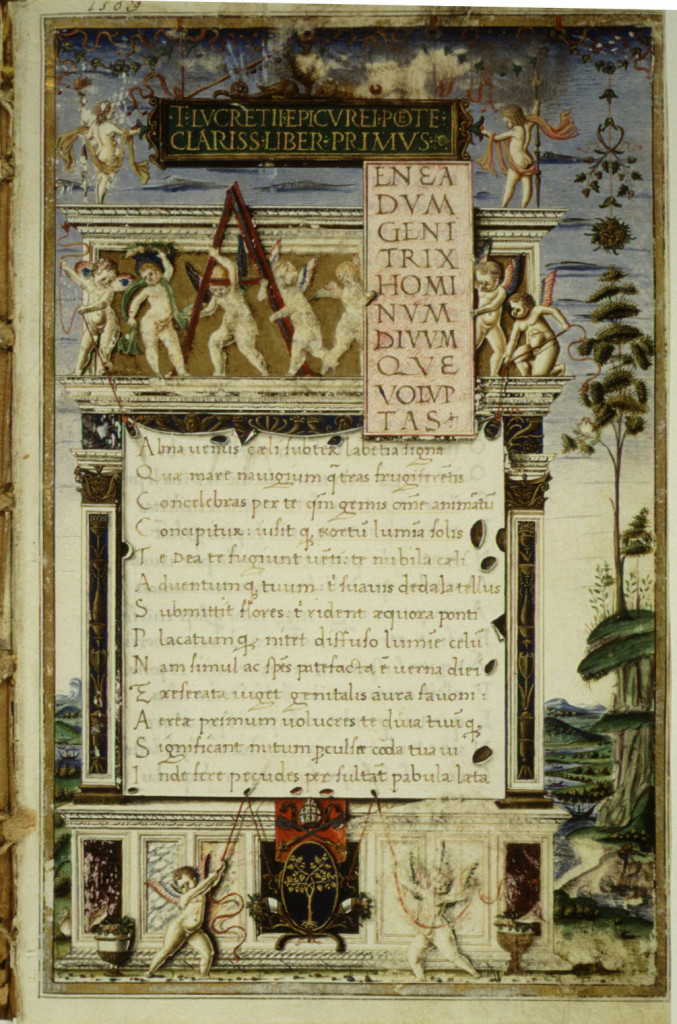 1509
T·LVCRETII·EPICVREI·POETE·
CLARISS·LIBER·PRIMVS·
ENEA
DVM
GENI
TRIX
HOMI
NVM
DIVVM
QVE
VOLVP
TAS
Alma uenus cæli subter labētia signa
Quæ mare nauigium q̄ tras frugiferētis
Concelebras per te qm̄ genus om̄e animātū
Concipitur: uisit q̨ exortū lumīa solis
Te Dea te fugiunt uēti: te nubila cæli
Aduentum q̨ tuum: t' suauis dedala tellus
Submittit flores: t' rident æquora ponti
Placatum q̨ nitet diffuso lumīe celū
Nam simul ac spēs patefacta ē uerna diei
Exeserata uiget genitalis aura fauoni:
Aereæ primum uolucres te diua tuū q̨
Significant initum ꝑculsæ coda tua ui
Inde fere pecudes per sultāt pabula læta